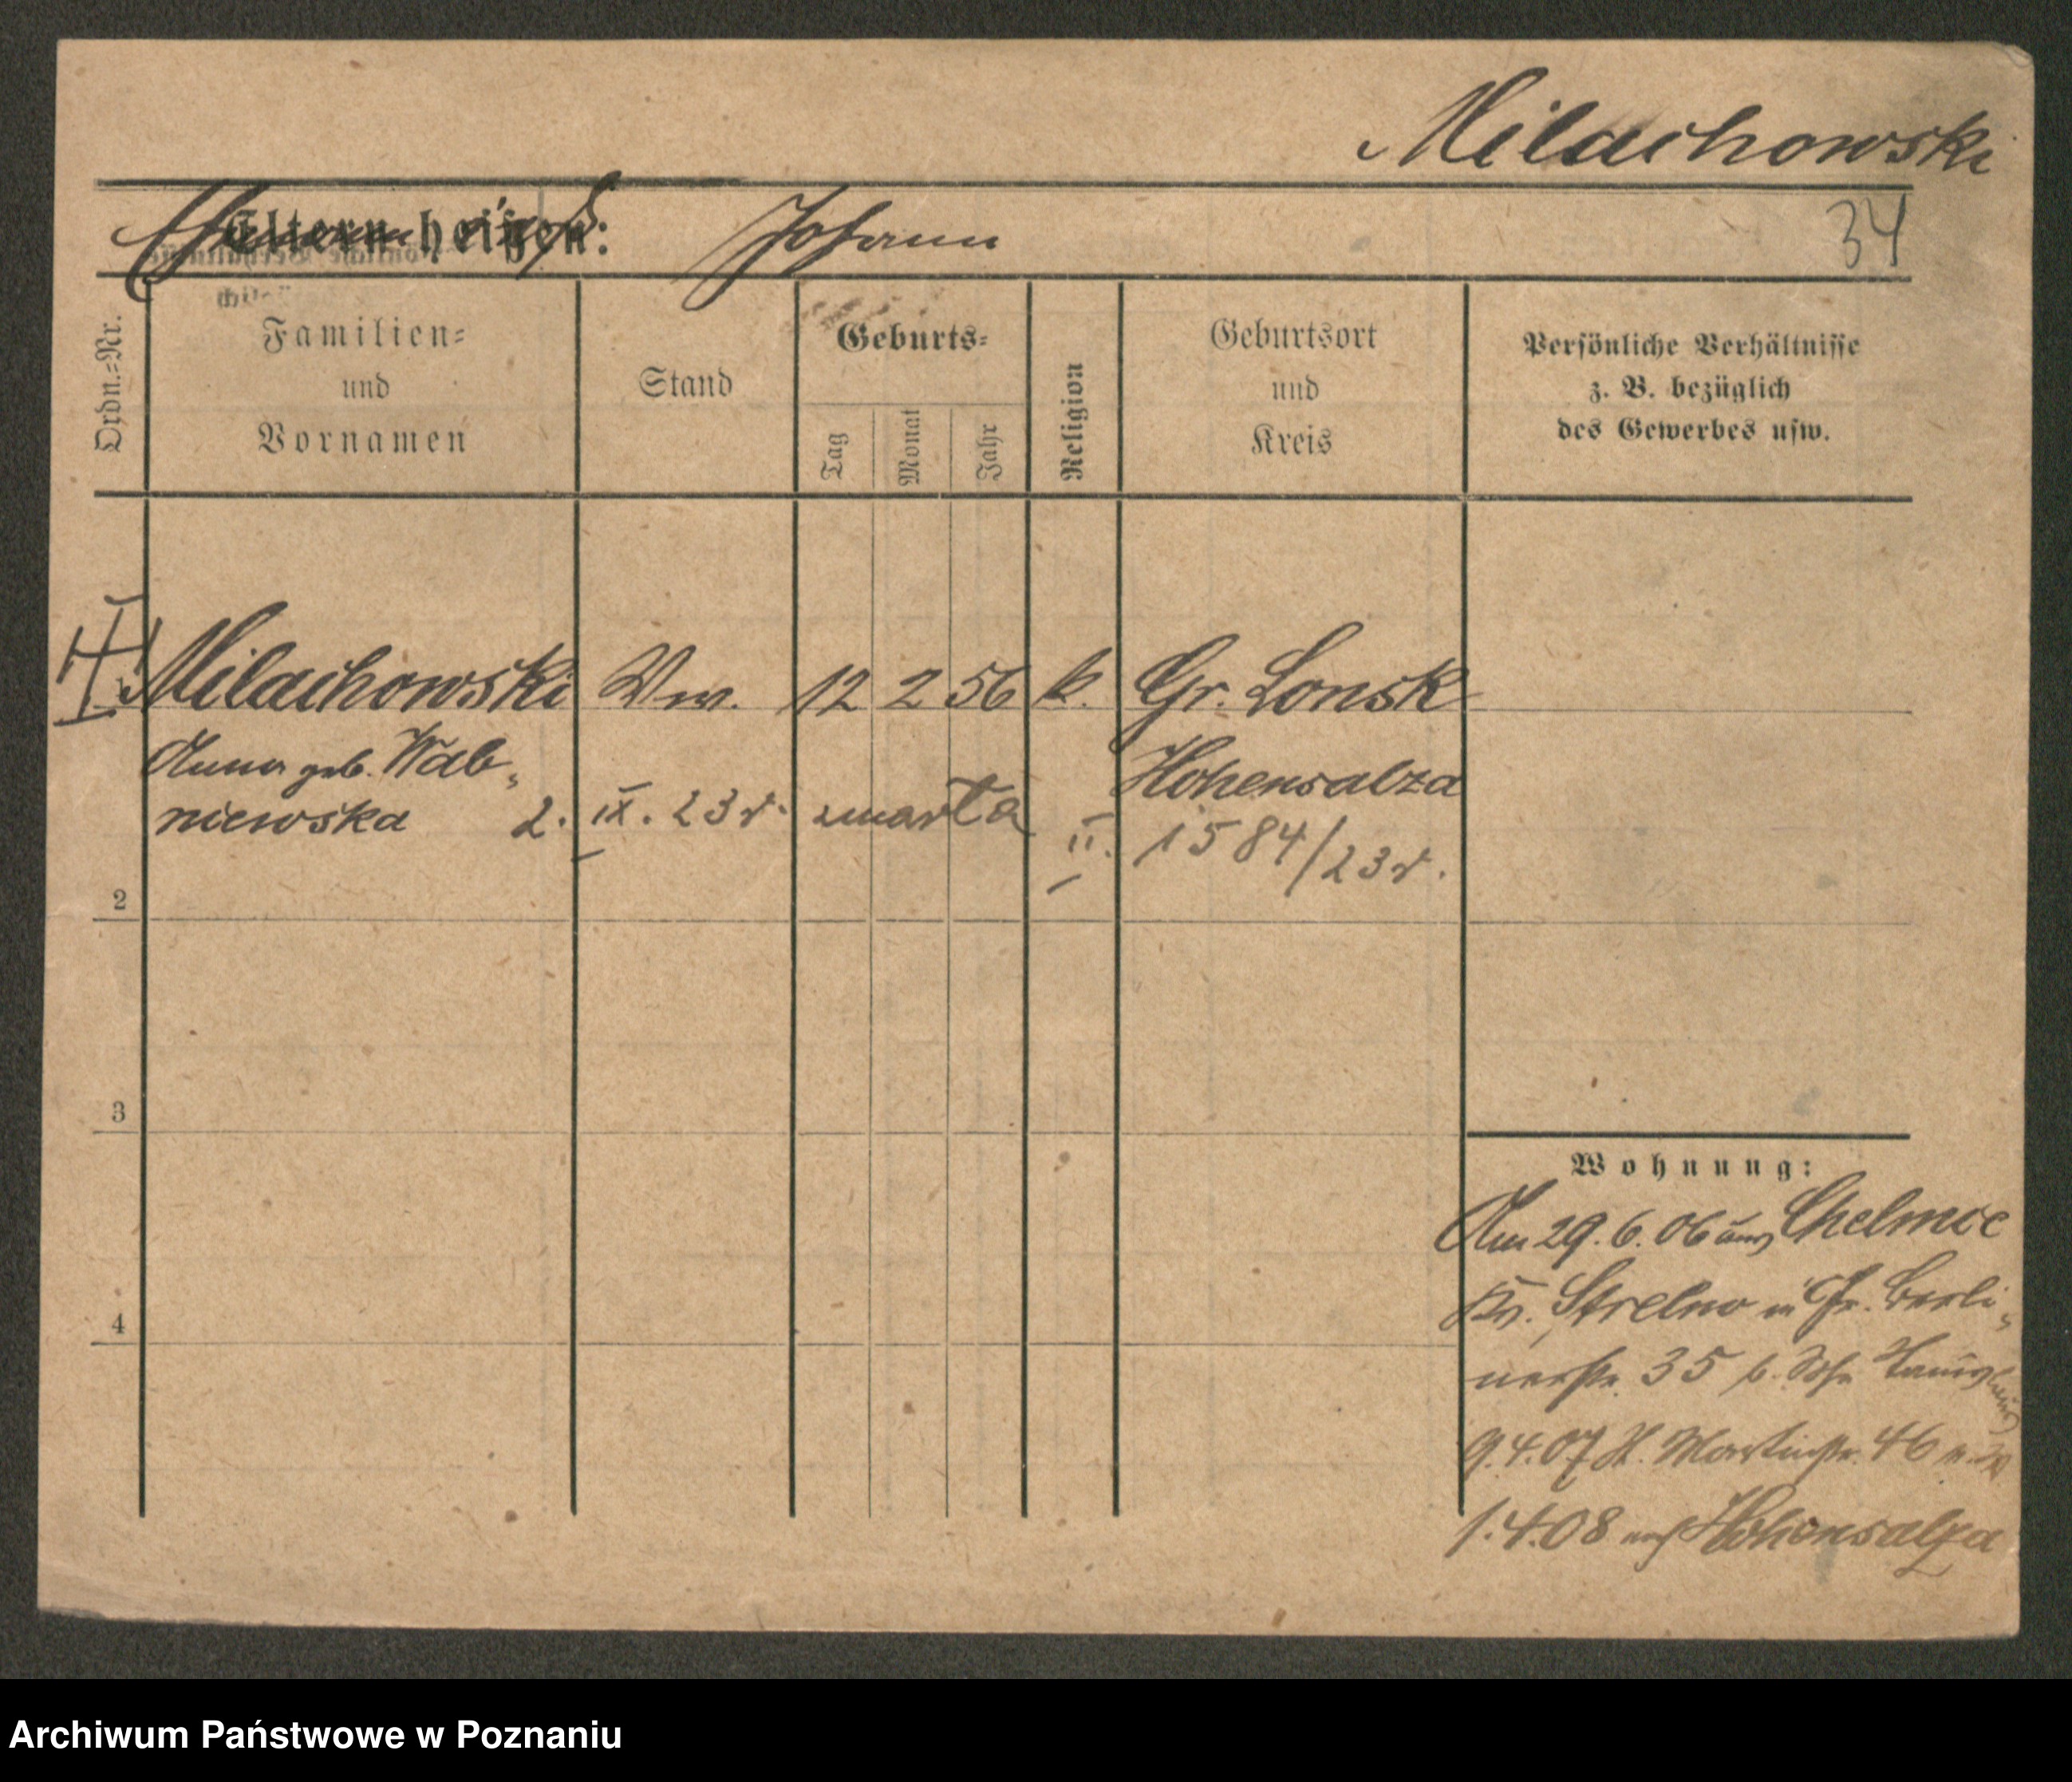 Milachowski
Eltern heißen: Johann
34
Ordn.=Nr.
Familien=
und
Vornamen
Stand
Geburts=
Tag
Monat
Jahr
Religion
Geburtsort
und
Kreis
Persönliche Verhältnisse
z. B. bezüglich
des Gewerbes usw.
Milachowski Ww. 12 2 56 k. Gr. Lonsk
Anna geb. Wab-
Hohensalza
niewska 2. IX. 23 r. zmarła
II. 1584/23 r.
2
3
4
Wohnung:
Am 29.6.06 aus Chelmce
Kr. Strelno in Gr. Berli-
nerstr. 35 b.
9.4.07 St. Martinstr. 46
1.4.08 nach Hohensalza
Archiwum Państwowe w Poznaniu